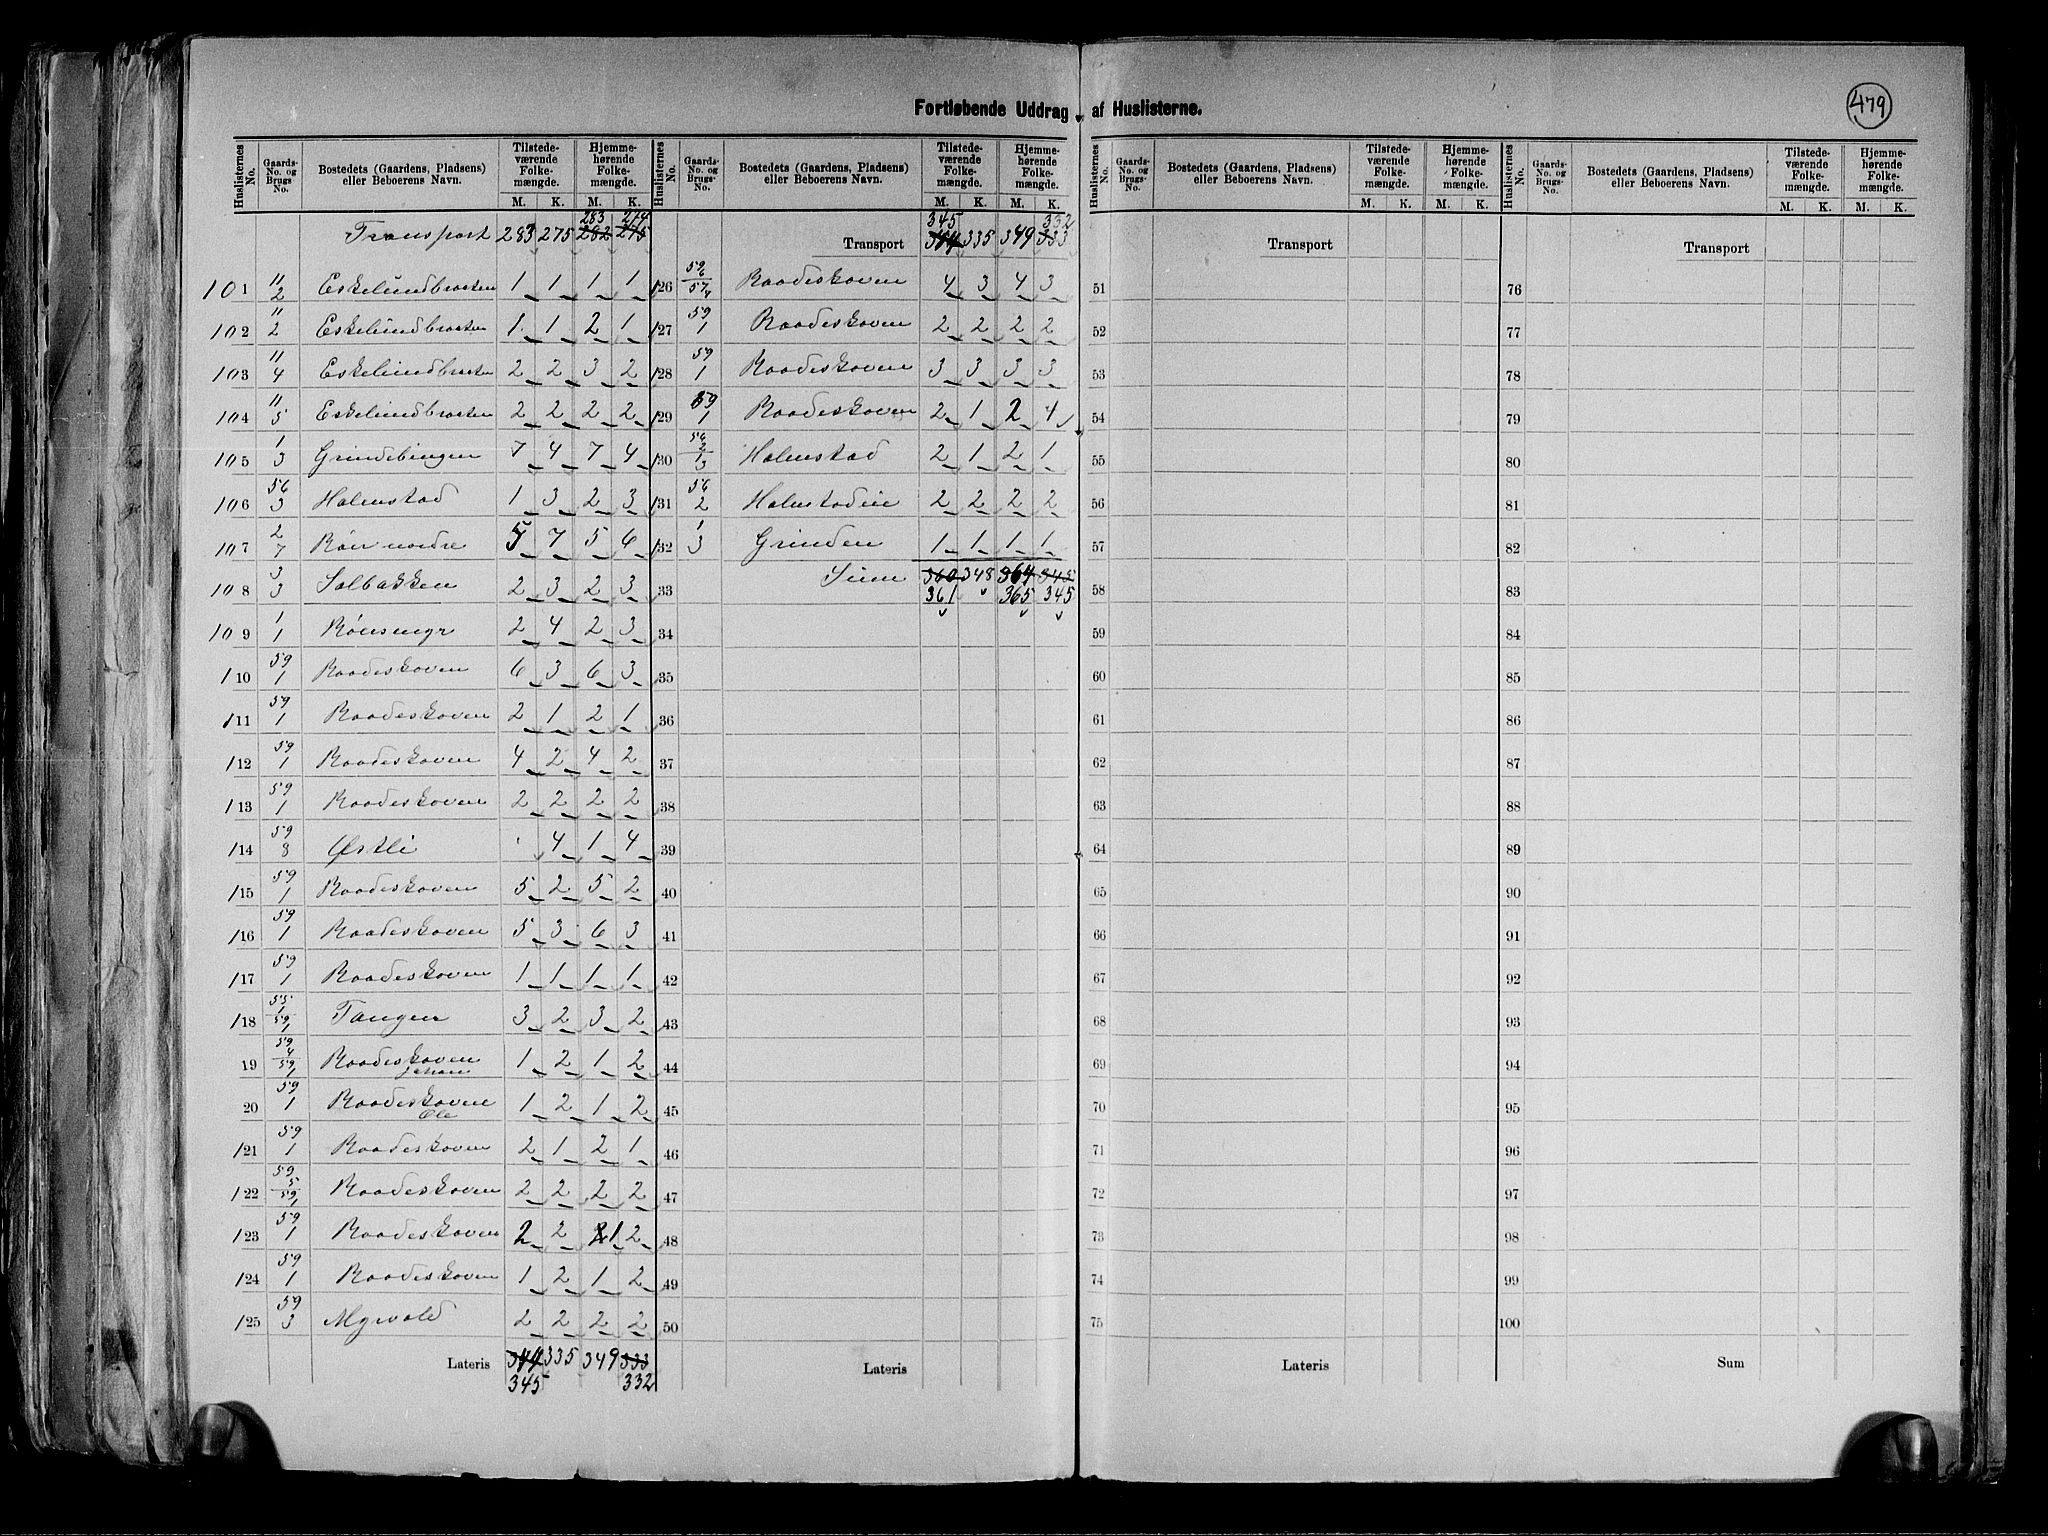 479
Fortløbende Uddrag af Huslisterne.
Huslisternes No. | Gaards-No. og Brugs-No. | Bostedets (Gaardens, Pladsens) eller Beboerens Navn. | Tilstedeværende Folkemængde. M. K. | Hjemmehørende Folkemængde. M. K.
Transport 283 275 283 274
282 275
101 11/2 Eskelundbraaten 1 1 1 1
102 11/2 Eskelundbraaten 1 1 2 1
103 11/4 Eskelundbraaten 2 2 3 2
104 11/5 Eskelundbraaten 2 2 2 2
105 1/3 Grindebingen 7 4 7 4
106 56/3 Holmstad 1 3 2 3
107 2/7 Røn nordre 5 7 5 6
108 3/3 Solbakken 2 3 2 3
109 1/1 Rönsmyr 2 4 2 3
110 59/1 Raadeskoven 6 3 6 3
111 59/1 Raadeskoven 2 1 2 1
112 59/1 Raadeskoven 4 2 4 2
113 59/1 Raadeskoven 2 2 2 2
114 59/8 Østli · 4 1 4
115 59/1 Raadeskoven 5 2 5 2
116 59/1 Raadeskoven 5 3 6 3
117 59/1 Raadeskoven 1 1 1 1
118 55/1 59/1 Tangen 3 2 3 2
19 59/4 59/1 Raadeskoven Johan 1 2 1 2
20 59/1 Raadeskoven Ole 1 2 1 2
121 59/1 Raadeskoven 2 1 2 1
122 59/5 59/1 Raadeskoven 2 2 2 2
123 59/1 Raadeskoven 2 2 2 1 2
124 59/1 Raadeskoven 1 2 1 2
125 59/3 Myrvold 2 2 2 2
Lateris 344 335 349 333
345 332
Huslisternes No. | Gaards-No. og Brugs-No. | Bostedets (Gaardens, Pladsens) eller Beboerens Navn. | Tilstedeværende Folkemængde. M. K. | Hjemmehørende Folkemængde. M. K.
345 332
Transport 344 335 349 333
126 59/6 57/4 Raadeskoven 4 3 4 3
127 59/1 Raadeskoven 2 2 2 2
128 59/1 Raadeskoven 3 3 3 3
129 59/1 Raadeskoven 2 1 2 1
130 56/2 1/3 Holmstad 2 1 2 1
131 56/2 Holmstadeie 2 2 2 2
132 1/3 Grinden 1 1 1 1
33 Sum 360 348 364 345
361 365 345
34
35
36
37
38
39
40
41
42
43
44
45
46
47
48
49
50
Lateris
Huslisternes No. | Gaards-No. og Brugs-No. | Bostedets (Gaardens, Pladsens) eller Beboerens Navn. | Tilstedeværende Folkemængde. M. K. | Hjemmehørende Folkemængde. M. K.
Transport
51
52
53
54
55
56
57
58
59
60
61
62
63
64
65
66
67
68
69
70
71
72
73
74
75
Lateris
Huslisternes No. | Gaards-No. og Brugs-No. | Bostedets (Gaardens, Pladsens) eller Beboerens Navn. | Tilstedeværende Folkemængde. M. K. | Hjemmehørende Folkemængde. M. K.
Transport
76
77
78
79
80
81
82
83
84
85
86
87
88
89
90
91
92
93
94
95
96
97
98
99
100
Sum